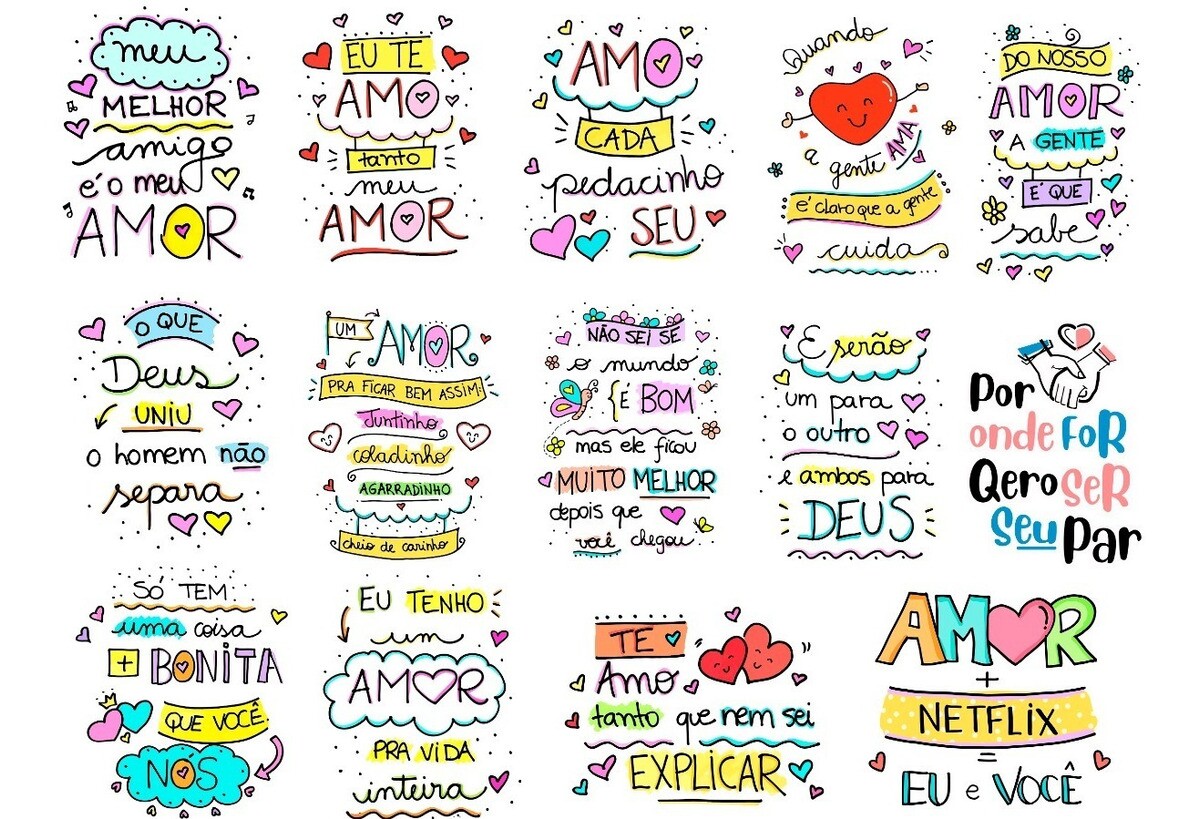 meu
MELHOR
amigo
é o meu
AMOR
EU TE
AMO
tanto
meu
AMOR
AMO
CADA
pedacinho
SEU
Quando
a gente AMA
é claro que a gente
cuida
DO NOSSO
AMOR
A GENTE
É QUE
sabe
O QUE
Deus
UNIU
o homem não
separa
UM AMOR
PRA FICAR BEM ASSIM:
Juntinho
coladinho
AGARRADINHO
cheio de carinho
NÃO SEI SE
o mundo
É BOM
mas ele ficou
MUITO MELHOR
depois que
você chegou
E serão
um para
o outro
e ambos para
DEUS
Por
onde FoR
Qero SeR
Seu Par
SÓ TEM
uma coisa
+ BONITA
QUE VOCÊ
NÓS
EU TENHO
um
AMOR
PRA VIDA
inteira
TE
Amo
tanto que nem sei
EXPLICAR
AMOR
+
NETFLIX
=
EU e VOCÊ